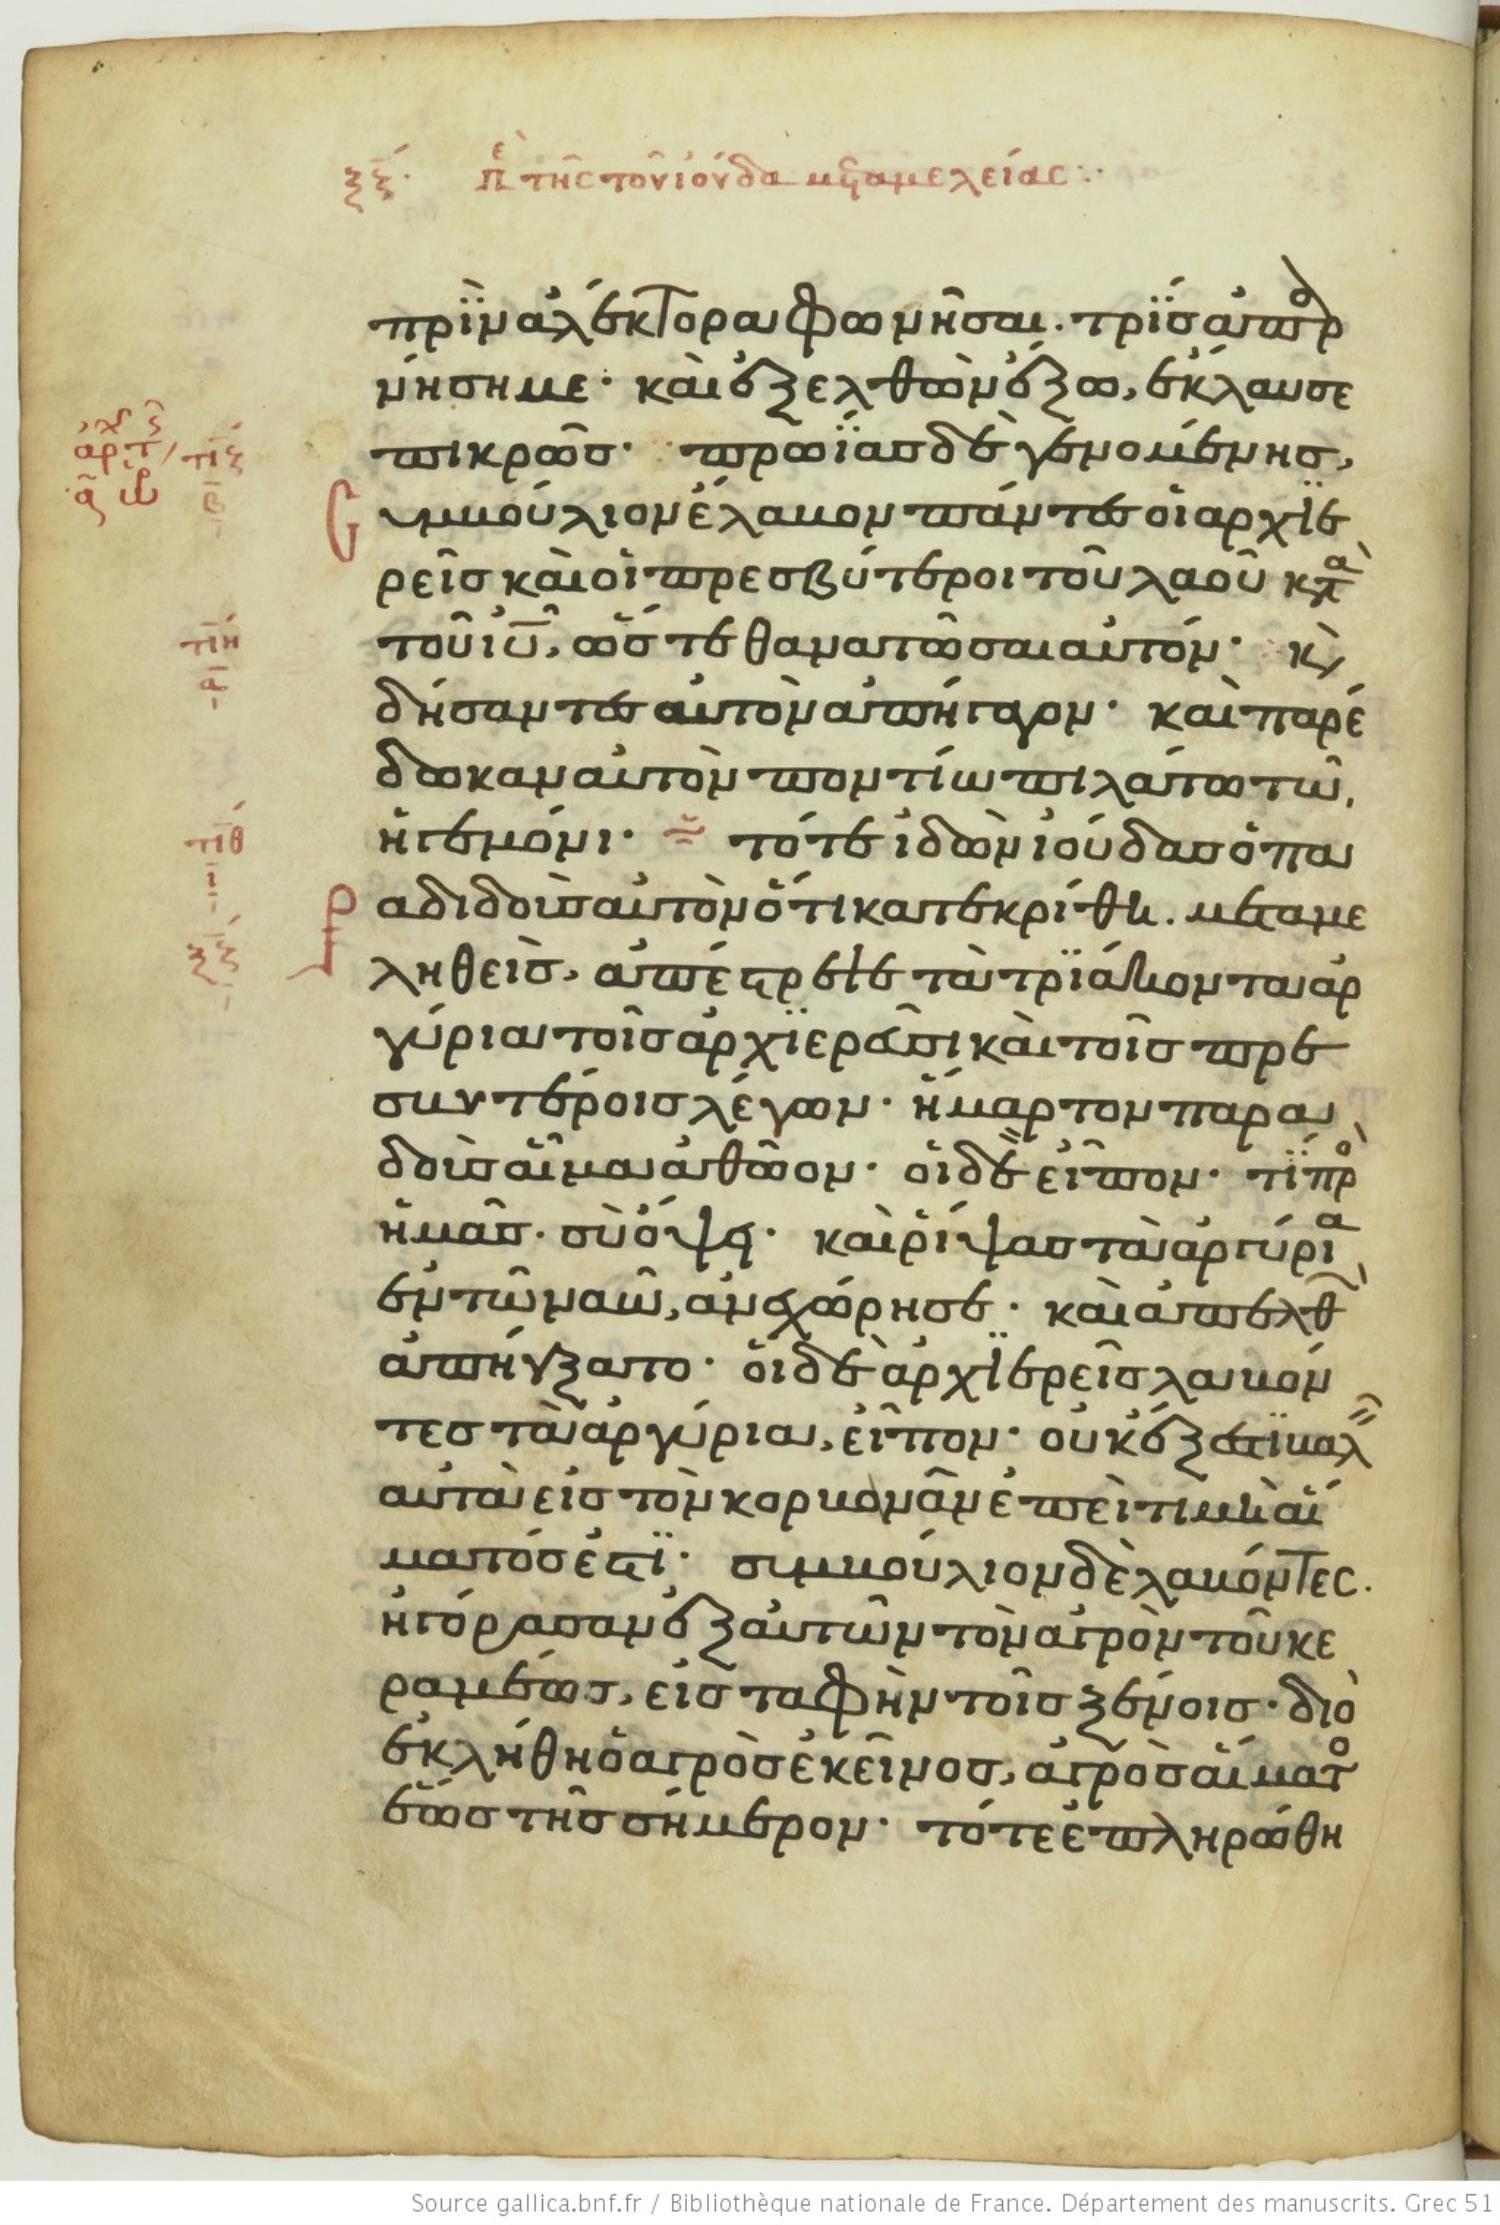 ξξ́· Πὲ τῆς τοῦ ἰούδα μεταμελείας:·
πρὶν ἀλέκτορα φωνῆσαι. τρὶς ἀπαρ
νήση με· καὶ ἐξελθὼν ἔξω, ἔκλαυσε
πικρῶς· πρωΐας δὲ γενομένης,
συμβούλιον ἔλαβον πάντες οἱ ἀρχϊε
ρεῖς καὶ οἱ πρεσβύτεροι τοῦ λαοῦ κτὰ
τοῦ ιῦ, ὥστε θανατῶσαι αὐτόν· κὶ
δήσαντες αὐτὸν ἀπήγαγον· καὶ παρέ
δωκαν αὐτὸν ποντίω πιλάτω τῶ,
ἡγεμόνι· τότε ἰδὼν ἰούδας ὁ πα
ραδιδοὺς αὐτὸν ὅτι κατεκρίθη. μεταμε
ληθεὶς, ἀπέστρεψε τὰ τρϊάκοντα ἀρ
γύρια τοῖς ἀρχϊερεῦσι καὶ τοῖς πρε
σβυτέροις λέγων· ἥμαρτον παρα
δοὺς αἷμα ἀθῶον· οἱ δὲ εἶπον· τί πρὸ
ἡμᾶς. σὺ ὄψει· καὶ ῥίψας τὰ ἀργύρια
ἐν τῶ ναῶ, ἀνεχώρησε· καὶ ἀπελθ
ἀπήγξατο· οἱ δὲ ἀρχϊερεῖς λαβόν
τες τὰ ἀργύρια, εἶπον· οὐκ ἔξεστϊ βαλ
αὐτὰ εἰς τὸν κορβονᾶν ἐπεὶ τιμὴ αἵ
ματός ἐστϊ· συμβούλιον δὲ λαβόντες.
ἠγόρασαν ἐξ αὐτῶν τὸν ἀγρὸν τοῦ κε
ραμέως, εἰς ταφὴν τοῖς ξένοις· διὸ
ἐκλήθη ὁ ἀγρὸς ἐκεῖνος, ἀγρὸς αἵματο
ἕως τῆς σήμερον· τότε ἐπληρώθη
τιζ
β
τιη
α
τιθ
ι
ξξ́
Source gallica.bnf.fr / Bibliothèque nationale de France. Département des manuscrits. Grec 51